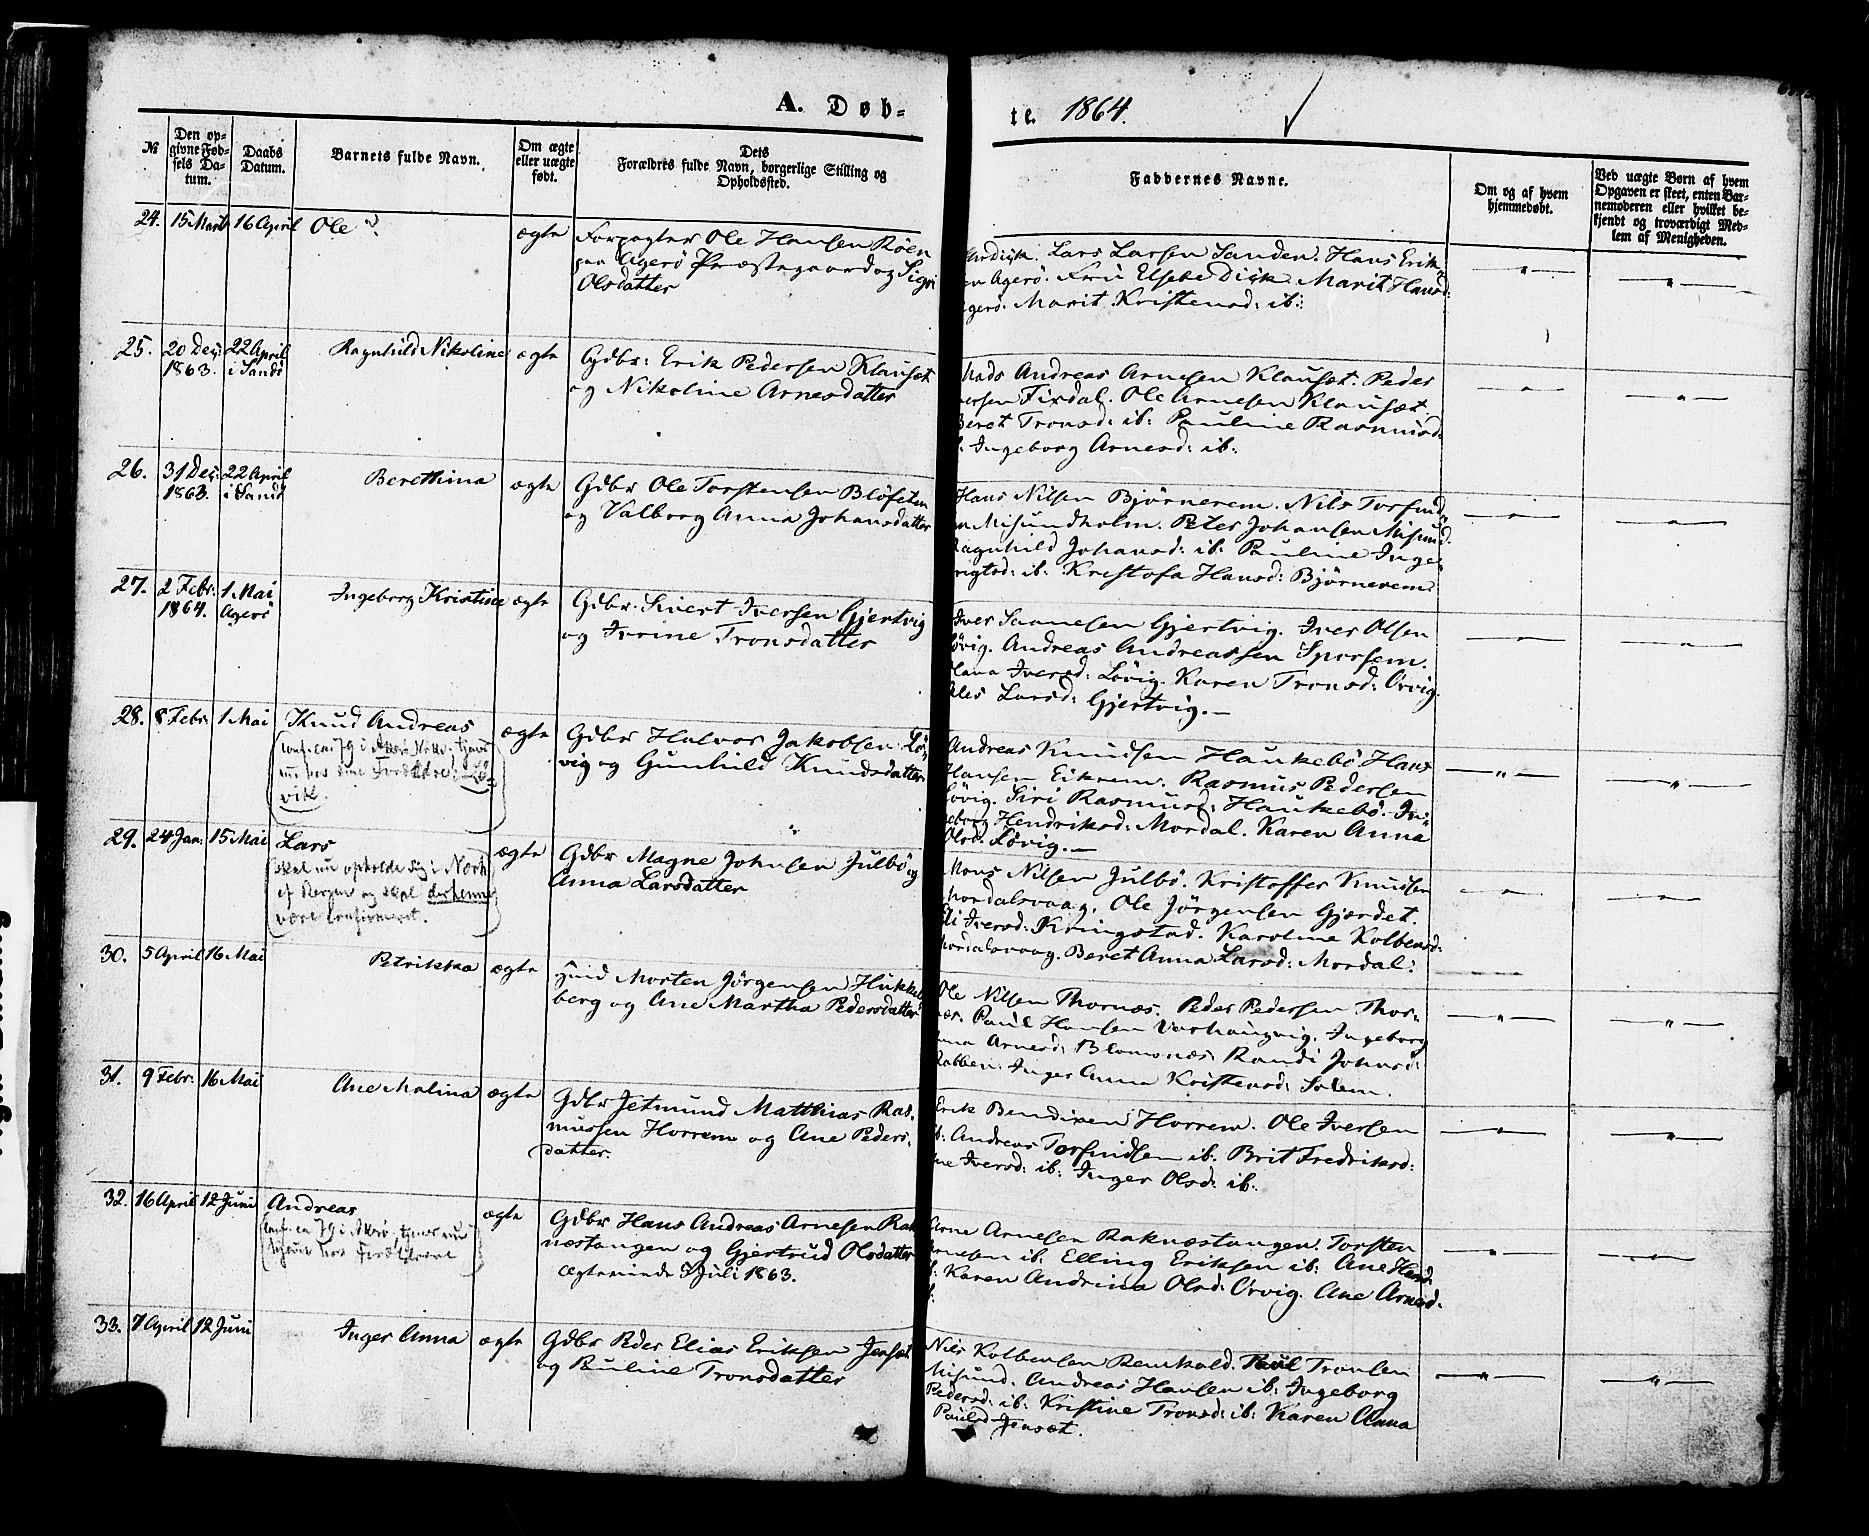 A. Døb-
te. 1864.
№
Den op-
givne Fød-
sels Da-
tum.
Daabs
Datum.
Barnets fulde Navn.
Om ægte
eller uægte
født.
Dets
Forældres fulde Navn, borgerlige Stilling og
Opholdssted.
Faddernes Navne.
Om og af hvem
hjemmedøbt.
Ved uægte Børn af hvem
Opgaven er skeet, enten Bar-
nemoderen eller hvilket be-
kjendt og troværdigt Med-
lem af Menigheden.
24. 15 Marts 16 April Ole ægte
Forpagter Ole Hansen Röen
paa Agerö Præstegaard og Sigri
Olsdatter
Lars Larsen Sanden. Hans Erik
en Agerö. Fru Elsebe Dick. Marit Hansd:
gerö. Marit Kristensd: ib:
25. 20 Dec: 22 April Ragnhild Nikoline ægte
1863. i Sandö
Gdbr: Erik Pedersen Klauset
og Nikoline Arnesdatter
Mads Andreas Arnesen Klauset. Peder
ersen Fixdal. Ole Arnesen Klausæt.
Beret Tronsd: ib: Pauline Rasmusd:
Ingeborg Arnesd: ib:
26. 31 Dec: 22 April Berethina ægte
1863. i Sandö
Gdbr Ole Torstensen Blöfeten
og Valborg Anna Johansdatter
Hans Nilsen Björnerem. Nils Torfind
en Misundholm. Peter Johansen Misund.
Ragnhild Johansd: ib: Pauline Inge
brigtsd: ib: Krestofa Hansd: Björnerem
27. 2 Febr: 1 Mai Ingeborg Kristine ægte
1864. Agerö
Gdbr. Sivert Iversen Gjertvig
og Ivrine Tronsdatter
Iver Sannesen Gjertvig. Iver Olsen
Lövig. Andreas Andreassen Sporsem.
Olava Iversd: Lövig. Karen Tronsd: Örvig
Ales Larsd: Gjertvig.
28. 8 Febr: 1 Mai Knud Andreas ægte
Gdbr Halvor Jakobsen Lö-
vig og Gunhild Knudsdatter
Andreas Knudsen Haukebö Hans
Hansen Eikrem. Rasmus Pedersen
Lövig. Siri Rasmusd: Haukebö. In-
geborg Hendriksd: Mordal. Karen Anna
Olsd: Lövig.
29. 24 Jan: 15 Mai Lars ægte
(skal nu opholde sig i Nord
af Bergen og skal derhenne
være konfirmeret.
Gdbr Magne Johnsen Julbö og
Anna Larsdatter
Mons Nilsen Julbö. Kristoffer Knudsen
Mordalsvaag. Ole Jörgensen Gjærdet.
Eli Iversd: Kringstad. Karoline Kolbensd:
Mordalsvaag. Beret Anna Larsd: Mordal:
30. 5 April 16 Mai Petrikka ægte
Morten Jörgensen Hukkel
berg og Ane Martha Pedersdatter
Ole Nilsen Thornæs. Peder Pedersen Thor-
næs. Paul Hansen Varhaugvig. Ingeborg
Anna Arnesd: Blomsnæs. Randi Johnsd:
Rabben. Inger Anna Kristensd: Solem.
31. 9 Febr: 16 Mai Ane Malina ægte
Gdbr Jetmund Matthias Ras-
mussen Horrem og Ane Peders-
datter.
Erik Bendixen Horrem. Ole Iversen
ib. Andreas Torfindsen ib. Brit Fredriksd:
Ane Iversd: ib: Inger Olsd: ib:
32. 16 April 12 Juni Andreas ægte
(Conf. ca 79 i Akerö, tjener nu
hjemme hos Forældrene
Gdbr Hans Andreas Arnesen Rak
næstangen og Gjertrud Olsdatter
Ægteviede 5 Juli 1863.
Arne Arnesen Raknæstangen. Torsten
Arnesen ib. Elling Eriksen ib: Ane Hansd:
ib: Karen Andrina Olsd: Örvig. Ane Arnesd.
ib:
33. 7 April 12 Juni Inger Anna ægte
Gdbr Peder Elias Eriksen Jenset
og Pauline Tronsdatter
Nils Kolbensen Remkold. Paul Tronsen
Misund. Andreas Hansen ib: Ingeborg
Pedersd: ib: Kristine Tronsd: ib: Karen Anna
Paulsd Jensæt.